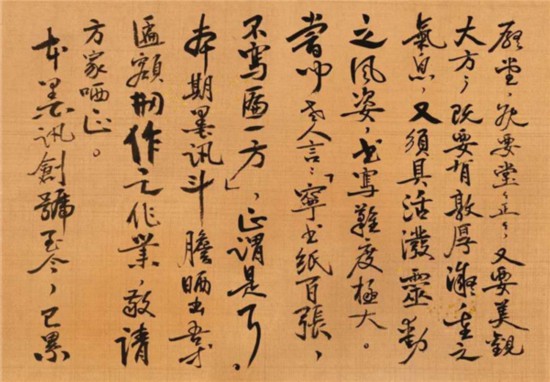 堂，要堂〻正〻，又要美觀
大方；既要有敦厚凝重之
氣息，又須具活潑靈動
之風姿，書寫難度極大。
嘗聞古人言：「寧書紙百張，
不寫匾一方」，正謂是。
本期墨訊斗膽晒出
匾額刱作之作業，敬請
方家哂正。
本墨訊創號至今，已累